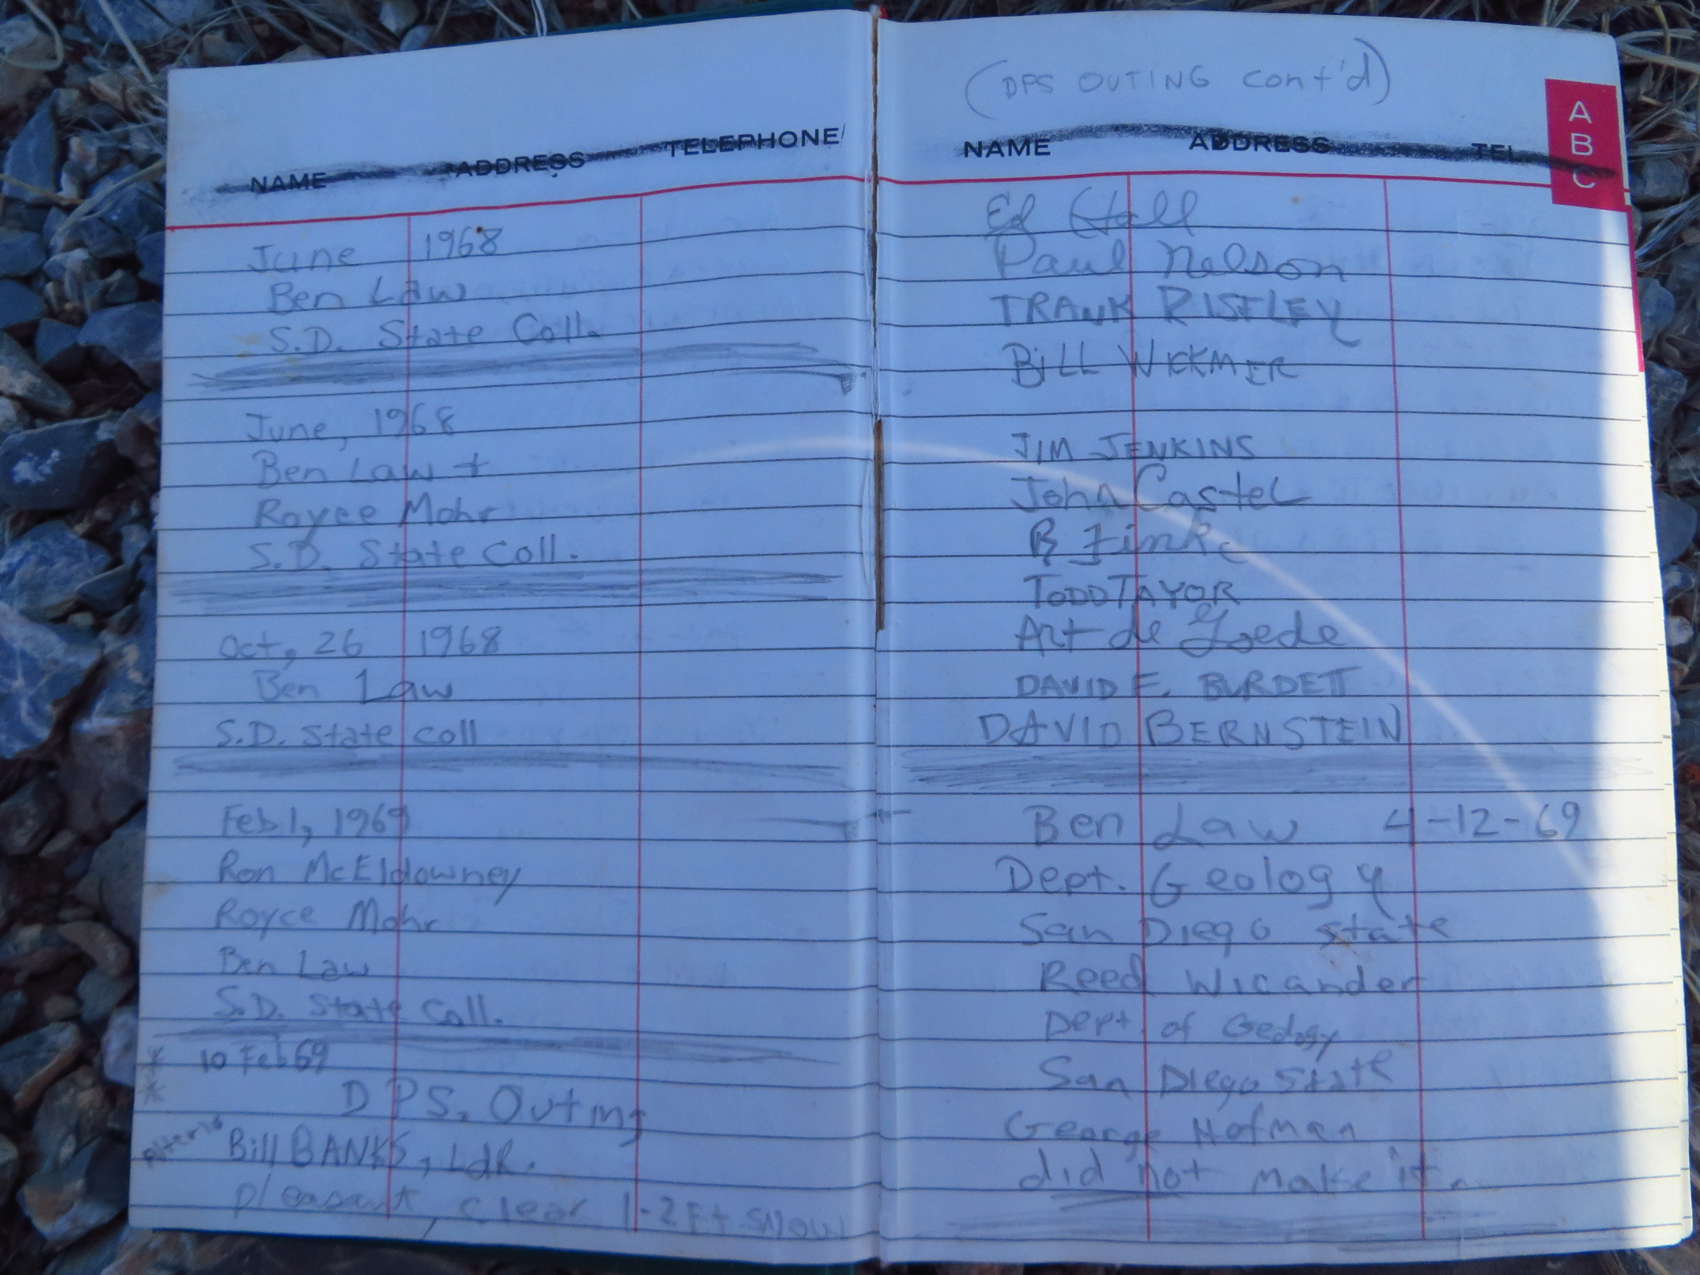 NAME ADDRESS TELEPHONE
June 1968
Ben Law
S.D. State Coll.
June, 1968
Ben Law +
Royce Mohr
S.D. State Coll.
Oct, 26 1968
Ben Law
S.D. State Coll
Feb 1, 1969
Ron McEldowney
Royce Mohr
Ben Law
S.D. State Coll.
* 10 Feb 69
* DPS. Outing
Bill BANKS, Ldr.
pleasant, clear 1-2 Ft snow
(DPS OUTING cont'd)
NAME ADDRESS TEL
A
B
C
Ed Hall
Paul Nelson
BILL
JIM JENKINS
John Castel
R Finke
TODD TAYOR
Art de Goede
DAVID E. BURDETT
DAVID BERNSTEIN
Ben Law 4-12-69
Dept. Geology
San Diego state
Reed Wicander
Dept. of Geology
San Diego State
George Hofman
did not make it.